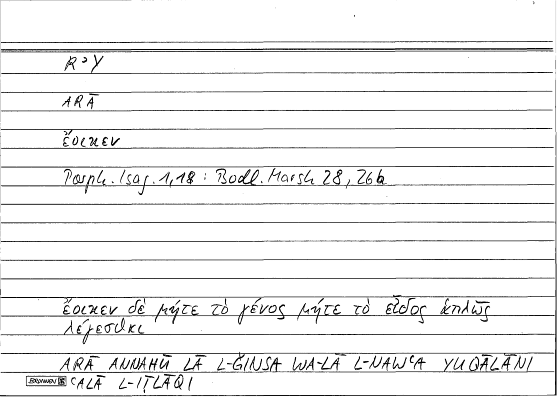 RʾY
ARĀ
ἔοικεν
Porph. Isag. 1,18 : Bodl. Marsh 28, 26b
ἔοικεν δὲ μήτε τὸ γένος μήτε τὸ εἶδος ἁπλῶς
λέγεσθαι
ARĀ ANNAHŪ LĀ L-ǦINSA WA-LĀ L-NAWʿA YUQĀLĀNI
BRUNNEN ʿALĀ L-IṬLĀQI